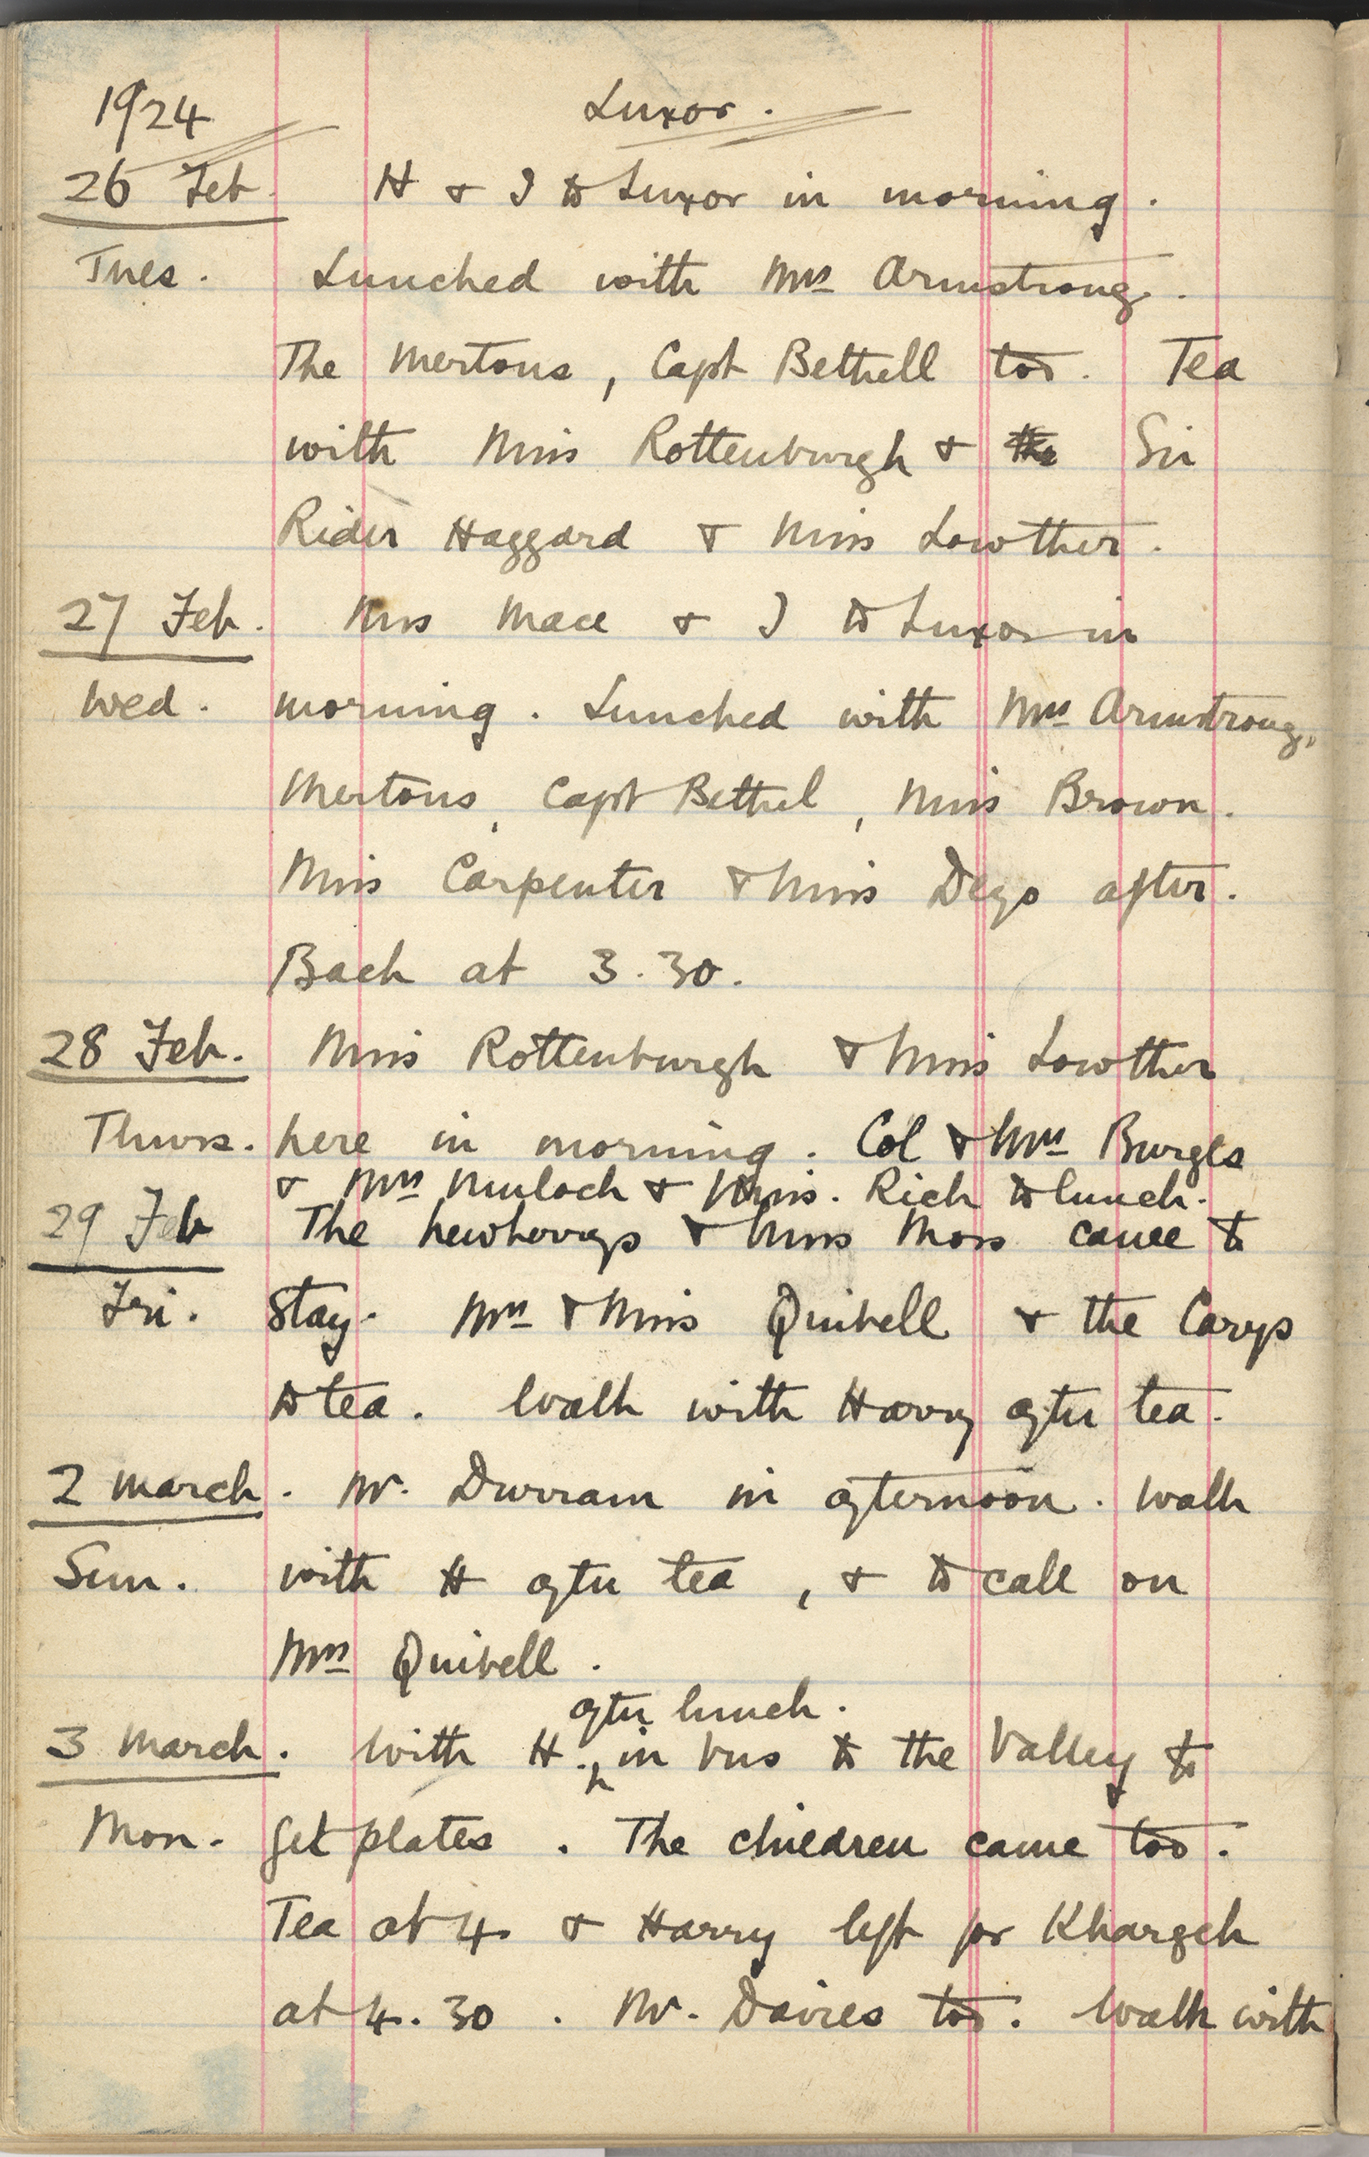 1924 Luxor.
26 Feb. H & I to Luxor in morning.
Tues. Lunched with Mrs Armstrong.
The Mertons, Capt Bethell too. Tea
with Miss Rottenburgh & the Sir
Rider Haggard & Miss Lowther.
27 Feb. Mrs Mace & I to Luxor in
Wed. morning. Lunched with Mrs Armstrong,
Mertons, Capt Bethel, Miss Brown.
Miss Carpenter & Miss Dego after.
Back at 3.30.
28 Feb. Miss Rottenburgh & Miss Lowther
Thurs. here in morning. Col & Mrs Burges
& Mrs Mulock & Miss. Rich to lunch.
29 Feb The Newberrys & Miss Moss came to
Fri. stay. Mrs & Miss Quibell & the Carys
to tea. Walk with Harry after tea.
2 March. Mr. Durram in afternoon. Walk
Sun. with H after tea, & to call on
Mrs Quibell.
after lunch.
3 March. With H. in bus to the Valley to
Mon. get plates. The children came too.
Tea at 4 & Harry left for Khargeh
at 4.30. Mr. Davies too. Walk with